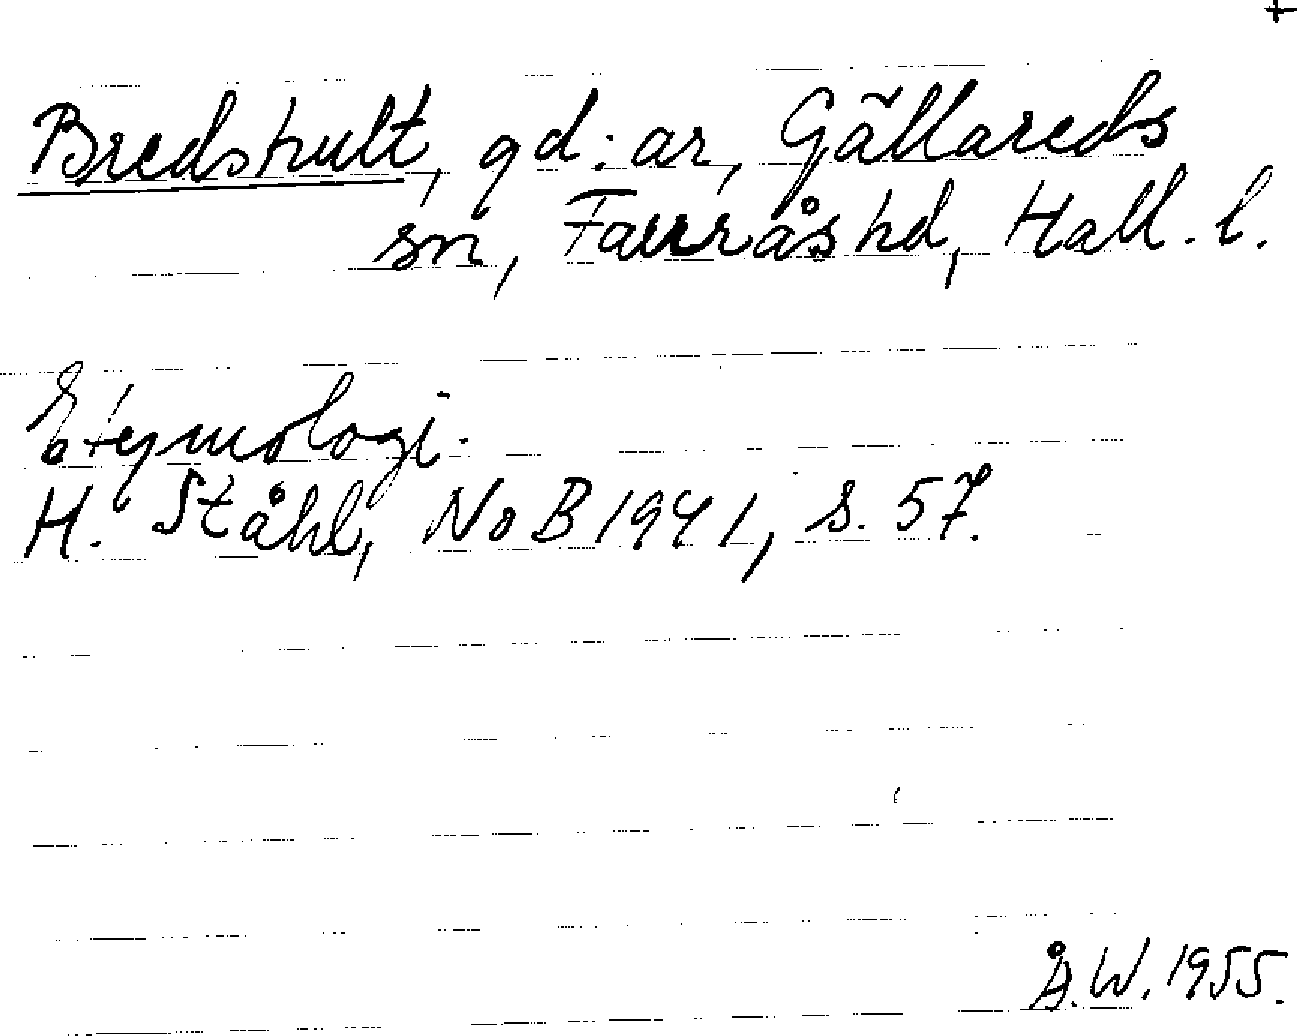 +
Bredshult, gd:ar, Gällareds
sn, Faurås hd, Hall. l.
Etymologi.
H. Ståhl, NoB 1941, s. 57.
Å.W. 1955.